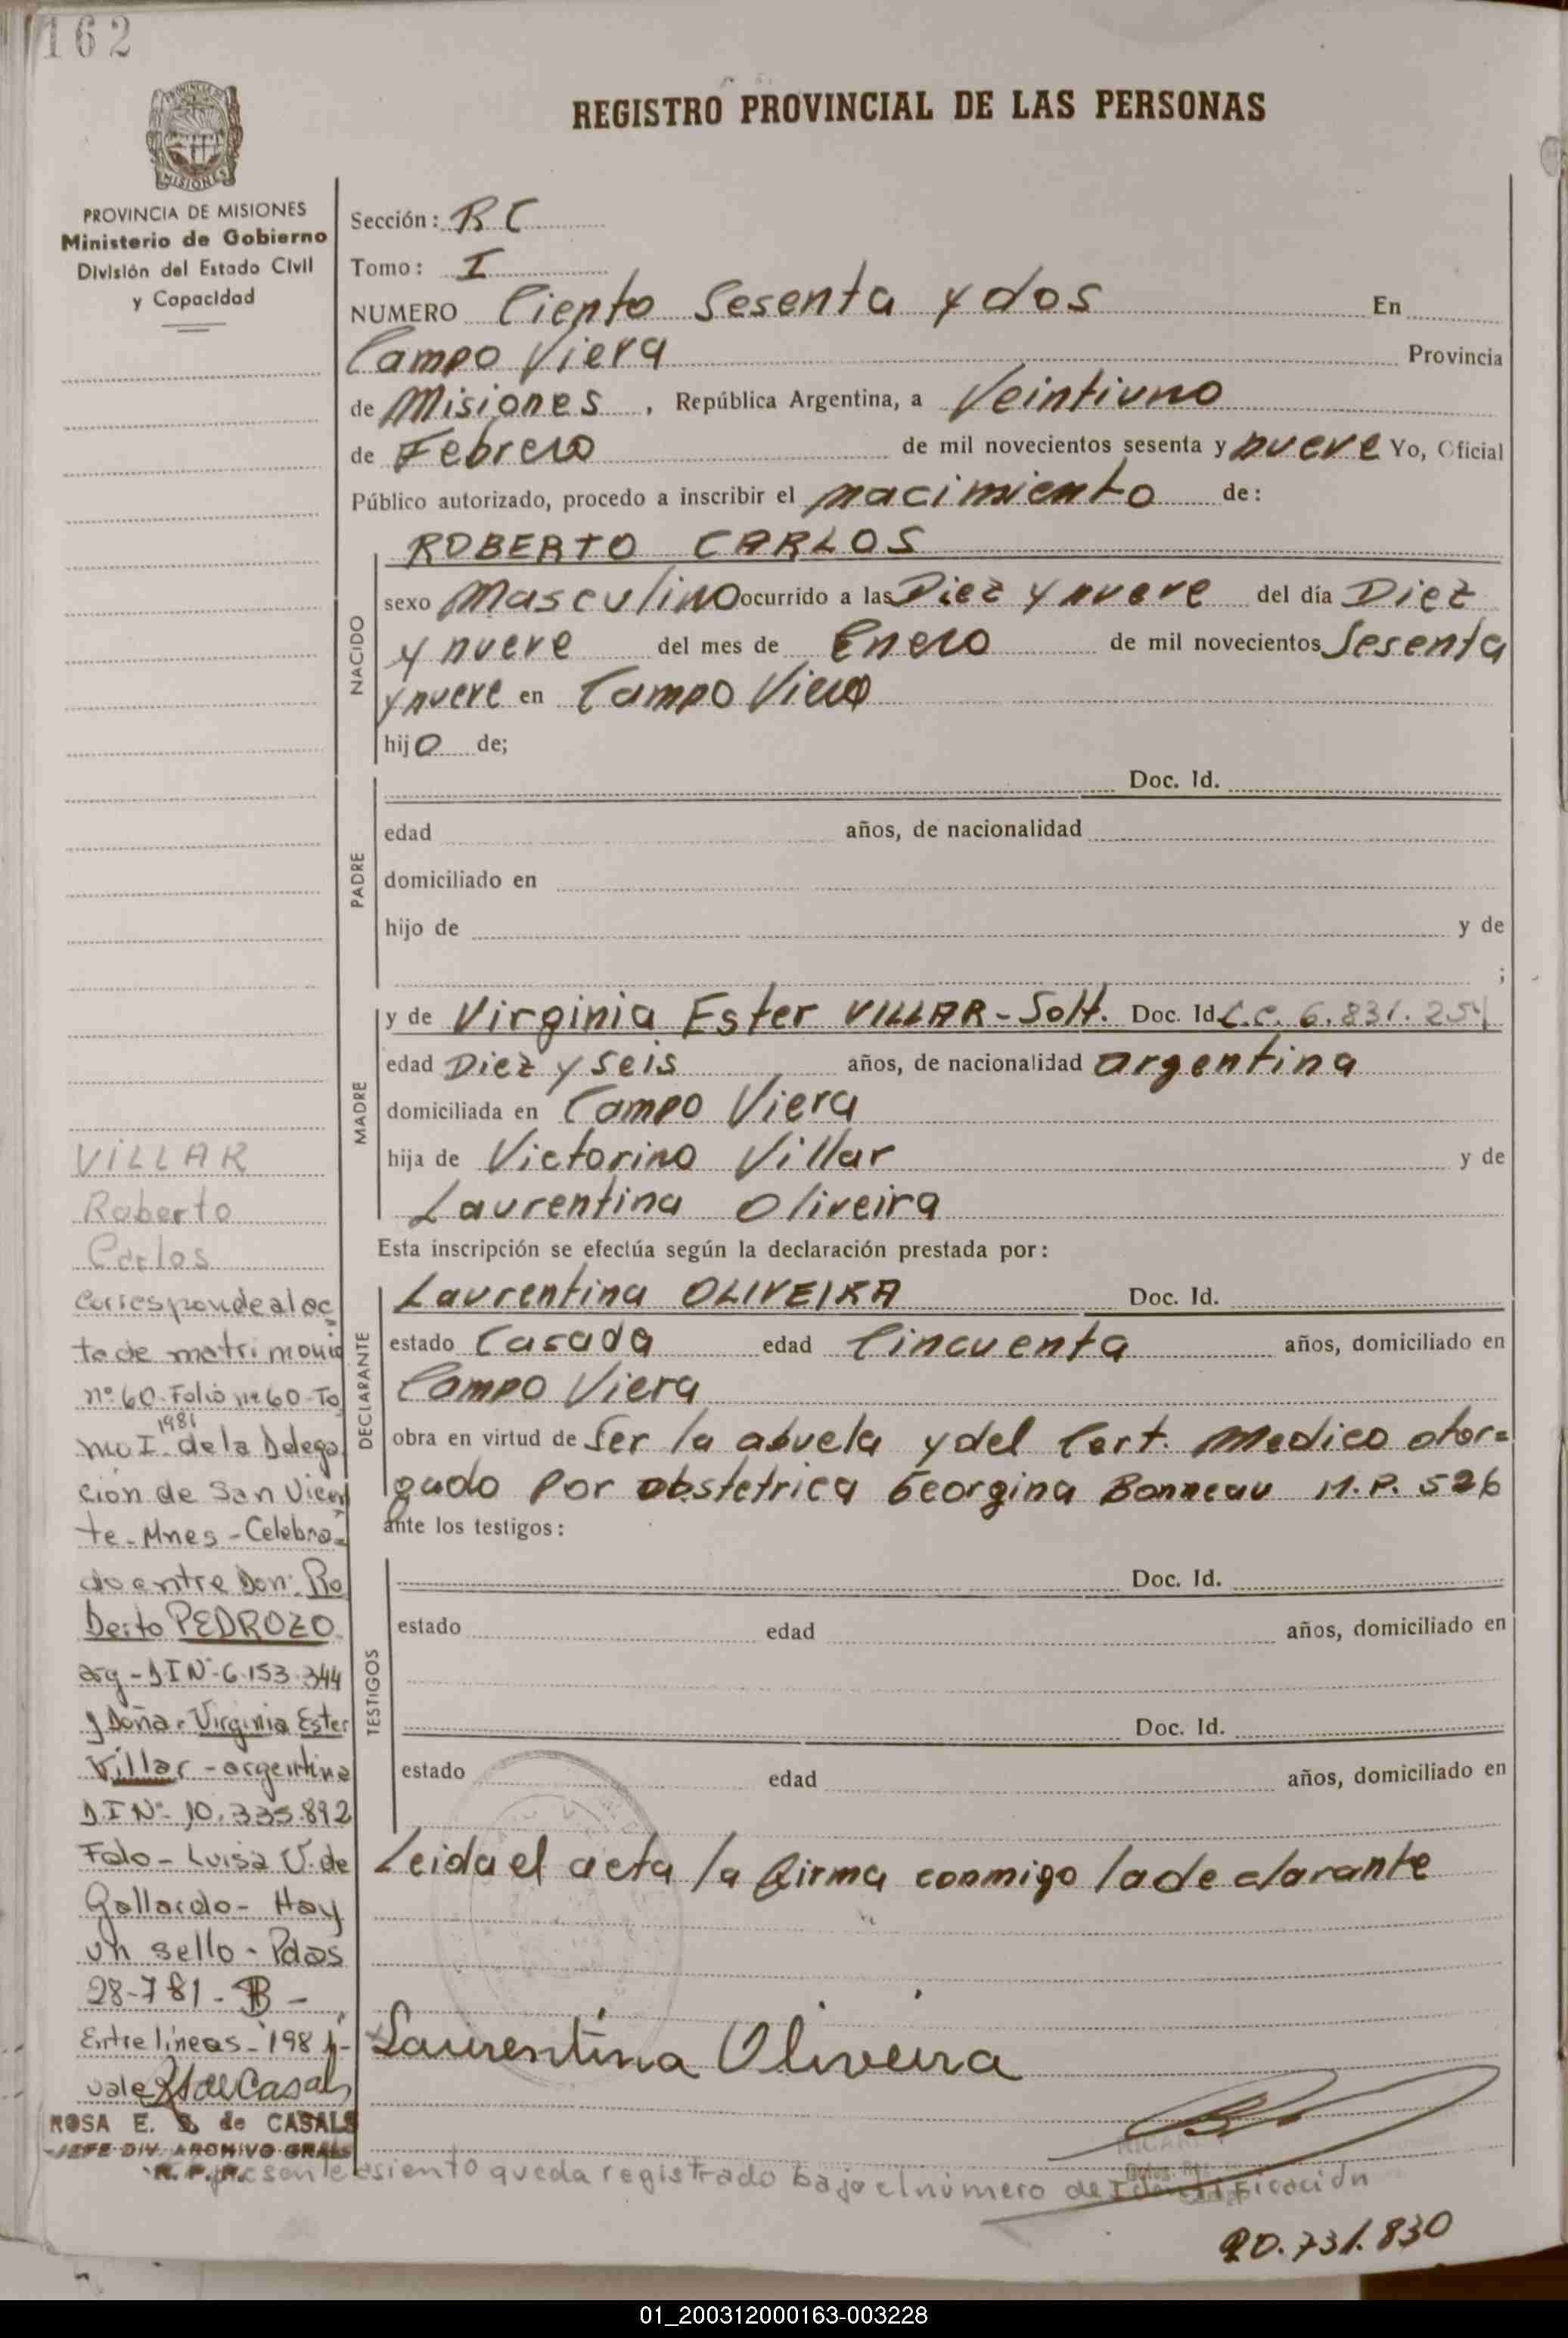 162
PROVINCIA DE MISIONES
MISIONES
REGISTRO PROVINCIAL DE LAS PERSONAS
PROVINCIA DE MISIONES
Ministerio de Gobierno
División del Estado Civil
y Capacidad
Sección: R C
Tomo: I
NUMERO Ciento Sesenta y dos En
Campo Viera Provincia
de Misiones, República Argentina, a Veintiuno
de Febrero de mil novecientos sesenta y nueve Yo, Oficial
Público autorizado, procedo a inscribir el nacimiento de:
NACIDO
ROBERTO CARLOS
sexo Masculino ocurrido a las Diez y nueve del día Diez
y nueve del mes de Enero de mil novecientos Sesenta
y nueve en Campo Viera
hijo de;
PADRE
Doc. Id.
edad años, de nacionalidad
domiciliado en
hijo de y de
;
MADRE
y de Virginia Ester VILLAR-Solt. Doc. Id. C.C. 6.831.254
edad Diez y seis años, de nacionalidad argentina
domiciliada en Campo Viera
hija de Victorino Villar y de
Laurentina Oliveira
Esta inscripción se efectúa según la declaración prestada por:
DECLARANTE
Laurentina OLIVEIRA Doc. Id.
estado Casada edad Cincuenta años, domiciliado en
Campo Viera
obra en virtud de Ser la abuela y del Cert. Medico otor=
gado por obstetrica Georgina Bonneau M.P. 526
ante los testigos:
TESTIGOS
Doc. Id.
estado edad años, domiciliado en
Doc. Id.
estado edad años, domiciliado en
Leida el acta la firma conmigo la declarante
Laurentina Oliveira
VILLAR
Roberto
Carlos
Corresponde al ac
ta de matrimonio
nº 60-Folio nº 60-To
mo I-1981 de la Delega
ción de San Vicen
te-Mnes-Celebra=
do entre Don: Ro
berto PEDROZO
arg-D.I Nº-6.153.344
y Doña-Virginia Ester
Villar-argentina
D.I Nº-10.335.892
Fdo-Luisa V. de
Gallardo-Hay
un sello-Pdas
28-7 81-
Entre líneas-1981-
vale
ROSA E. S de CASALS
JEFE DIV. ARCHIVO GRAL
R. P. P.
presente asiento queda registrado bajo el número de Identificación
20.731.830
01_200312000163-003228